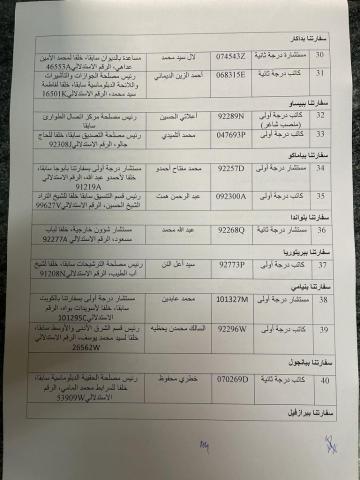 سفارتنا بداكار
30 مستشارة درجة ثانية 074543Z لال سيد محمد مساعدة بالديوان سابقا، خلفا لمحمد الأمين
عداهي، الرقم الاستدلالي 46553A
31 كاتب درجة ثانية 068315E أحمد الزين الديماني رئيس مصلحة الجوازات والتأشيرات
واللائحة الدبلوماسية سابقا، خلفا لفاطمة
سيد محمد، الرقم الاستدلالي 16501K
سفارتنا ببيساو
32 كاتب درجة أولى 92289N أعلاتي الحسين رئيس مصلحة مركز اتصال الطوارئ
(منصب شاغر) سابقا
33 كاتب درجة أولى 047693P محمد الشيدي رئيس مصلحة التصديق سابقا، خلفا للحاج
جالو، الرقم الاستدلالي 92308J
سفارتنا بباماكو
34 مستشار درجة أولى 92257D محمد مفتاح أحمدو مستشار درجة أولى بسفارتنا بأبوجا سابقا،
خلفا لأحمدو عبد الله، الرقم الاستدلالي
91219A
35 كاتب درجة أولى 092300A عبد الرحمن همت رئيس قسم التنسيق سابقا خلفا للشيخ التراد
الشيخ الحسين، الرقم الاستدلالي 99627V
سفارتنا بلواندا
36 مستشار درجة ثانية 92268Q عبد الله محمد مستشار شؤون خارجية، خلفا لباب
مسعود، الرقم الاستدلالي 92277A
سفارتنا ببريتوريا
37 كاتب درجة أولى 92773P سيد أعل النن رئيس مصلحة الترشيحات سابقا، خلفا لشيخ
آب الطيب، الرقم الاستدلالي 91208N
سفارتنا بنيامي
38 مستشار درجة أولى 101327M محمد عابدين مستشار درجة أولى بسفارتنا بالكويت
سابقا، خلفا لأسويدات بواه، الرقم
الاستدلالي 101295C
39 كاتب درجة أولى 92296W السالك محمدن يحظيه رئيس قسم الشرق الأدنى والأوسط سابقا،
خلفا لسيد محمد يوسف، الرقم الاستدلالي
26562W
سفارتنا ببانجول
40 كاتب درجة ثانية 070269D خطري محفوظ رئيس مصلحة الحقيبة الدبلوماسية سابقا،
خلفا للمرابط محمد المامي، الرقم
الاستدلالي 53909W
سفارتنا ببرازفيل